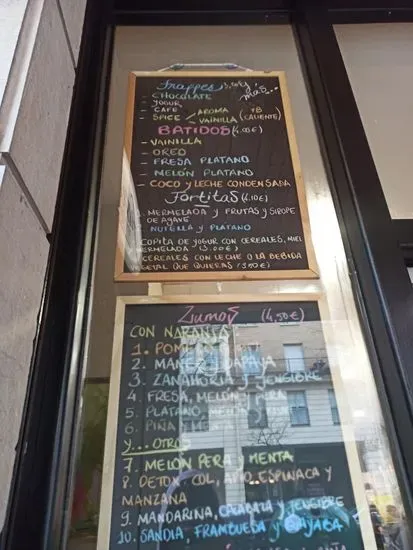 Frappes
y más...
- CHOCOLATE
- YOGUR
- CAFÉ
- SPICE AROMA
VAINILLA
(CALIENTE)
BATIDOS
- VAINILLA
- OREO
- FRESA PLATANO
- MELÓN PLATANO
- COCO y LECHE CONDENSADA
Tortitas (6.10€)
. MERMELADA y FRUTAS y SIROPE
DE AGAVE
NUTELLA y PLATANO
COPITA DE YOGUR CON CEREALES, MIEL
MERMELADA (3.00€)
CEREALES CON LECHE O LA BEBIDA
VEGETAL QUE QUIERAS
Zumos (4,50€)
CON NARANJA
2. PAPAYA
3. ZANAHORIA y JENGIBRE
4. FRESA, MELÓN y PERA
5. PLATANO, MELÓN y
6. PIÑA
y... OTROS
7. MELÓN PERA y MENTA
8. DETOX: COL, APIO, ESPINACA y
MANZANA
9. MANDARINA, CALABAZA y JENGIBRE
10. SANDIA, FRAMBUESA y GUAYABA